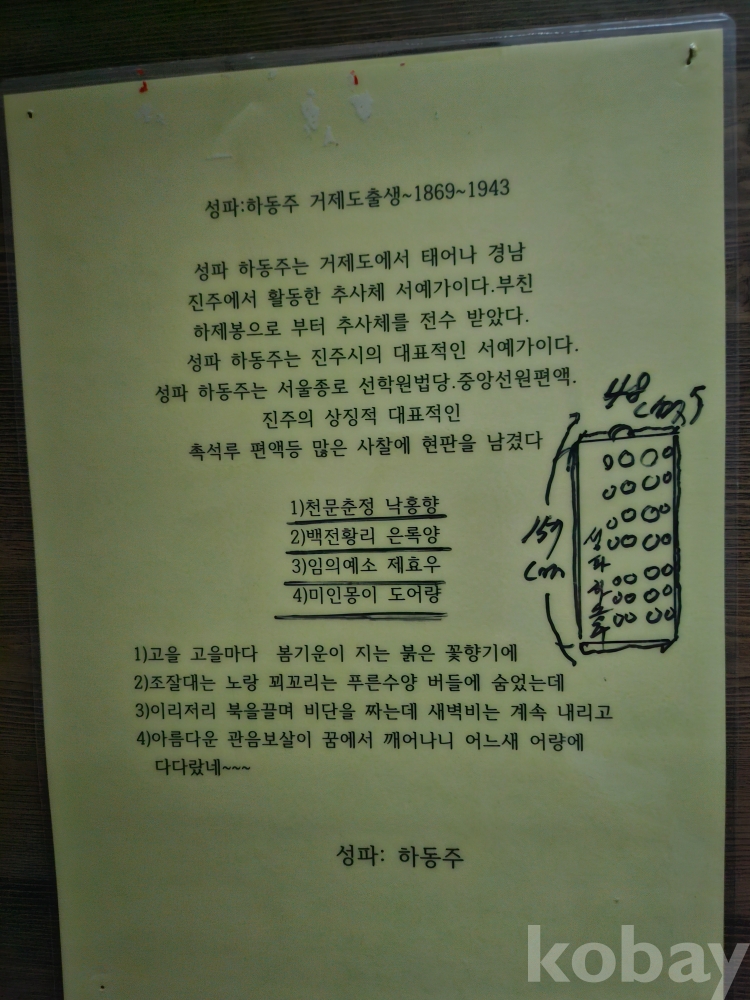 성파:하동주 거제도출생~1869~1943
성파 하동주는 거제도에서 태어나 경남
진주에서 활동한 추사체 서예가이다.부친
하제봉으로 부터 추사체를 전수 받았다.
성파 하동주는 진주시의 대표적인 서예가이다.
성파 하동주는 서울종로 선학원법당.중앙선원편액.
진주의 상징적 대표적인
촉석루 편액등 많은 사찰에 현판을 남겼다
1)천문춘정 낙홍향
2)백전황리 은록양
3)임의예소 제효우
4)미인몽이 도어량
48
cm
159
cm
성파 하동주
1)고을 고을마다 봄기운이 지는 붉은 꽃향기에
2)조잘대는 노랑 꾀꼬리는 푸른수양 버들에 숨었는데
3)이리저리 북을끌며 비단을 짜는데 새벽비는 계속 내리고
4)아름다운 관음보살이 꿈에서 깨어나니 어느새 어량에
다다랐네~~~
성파: 하동주
kobay